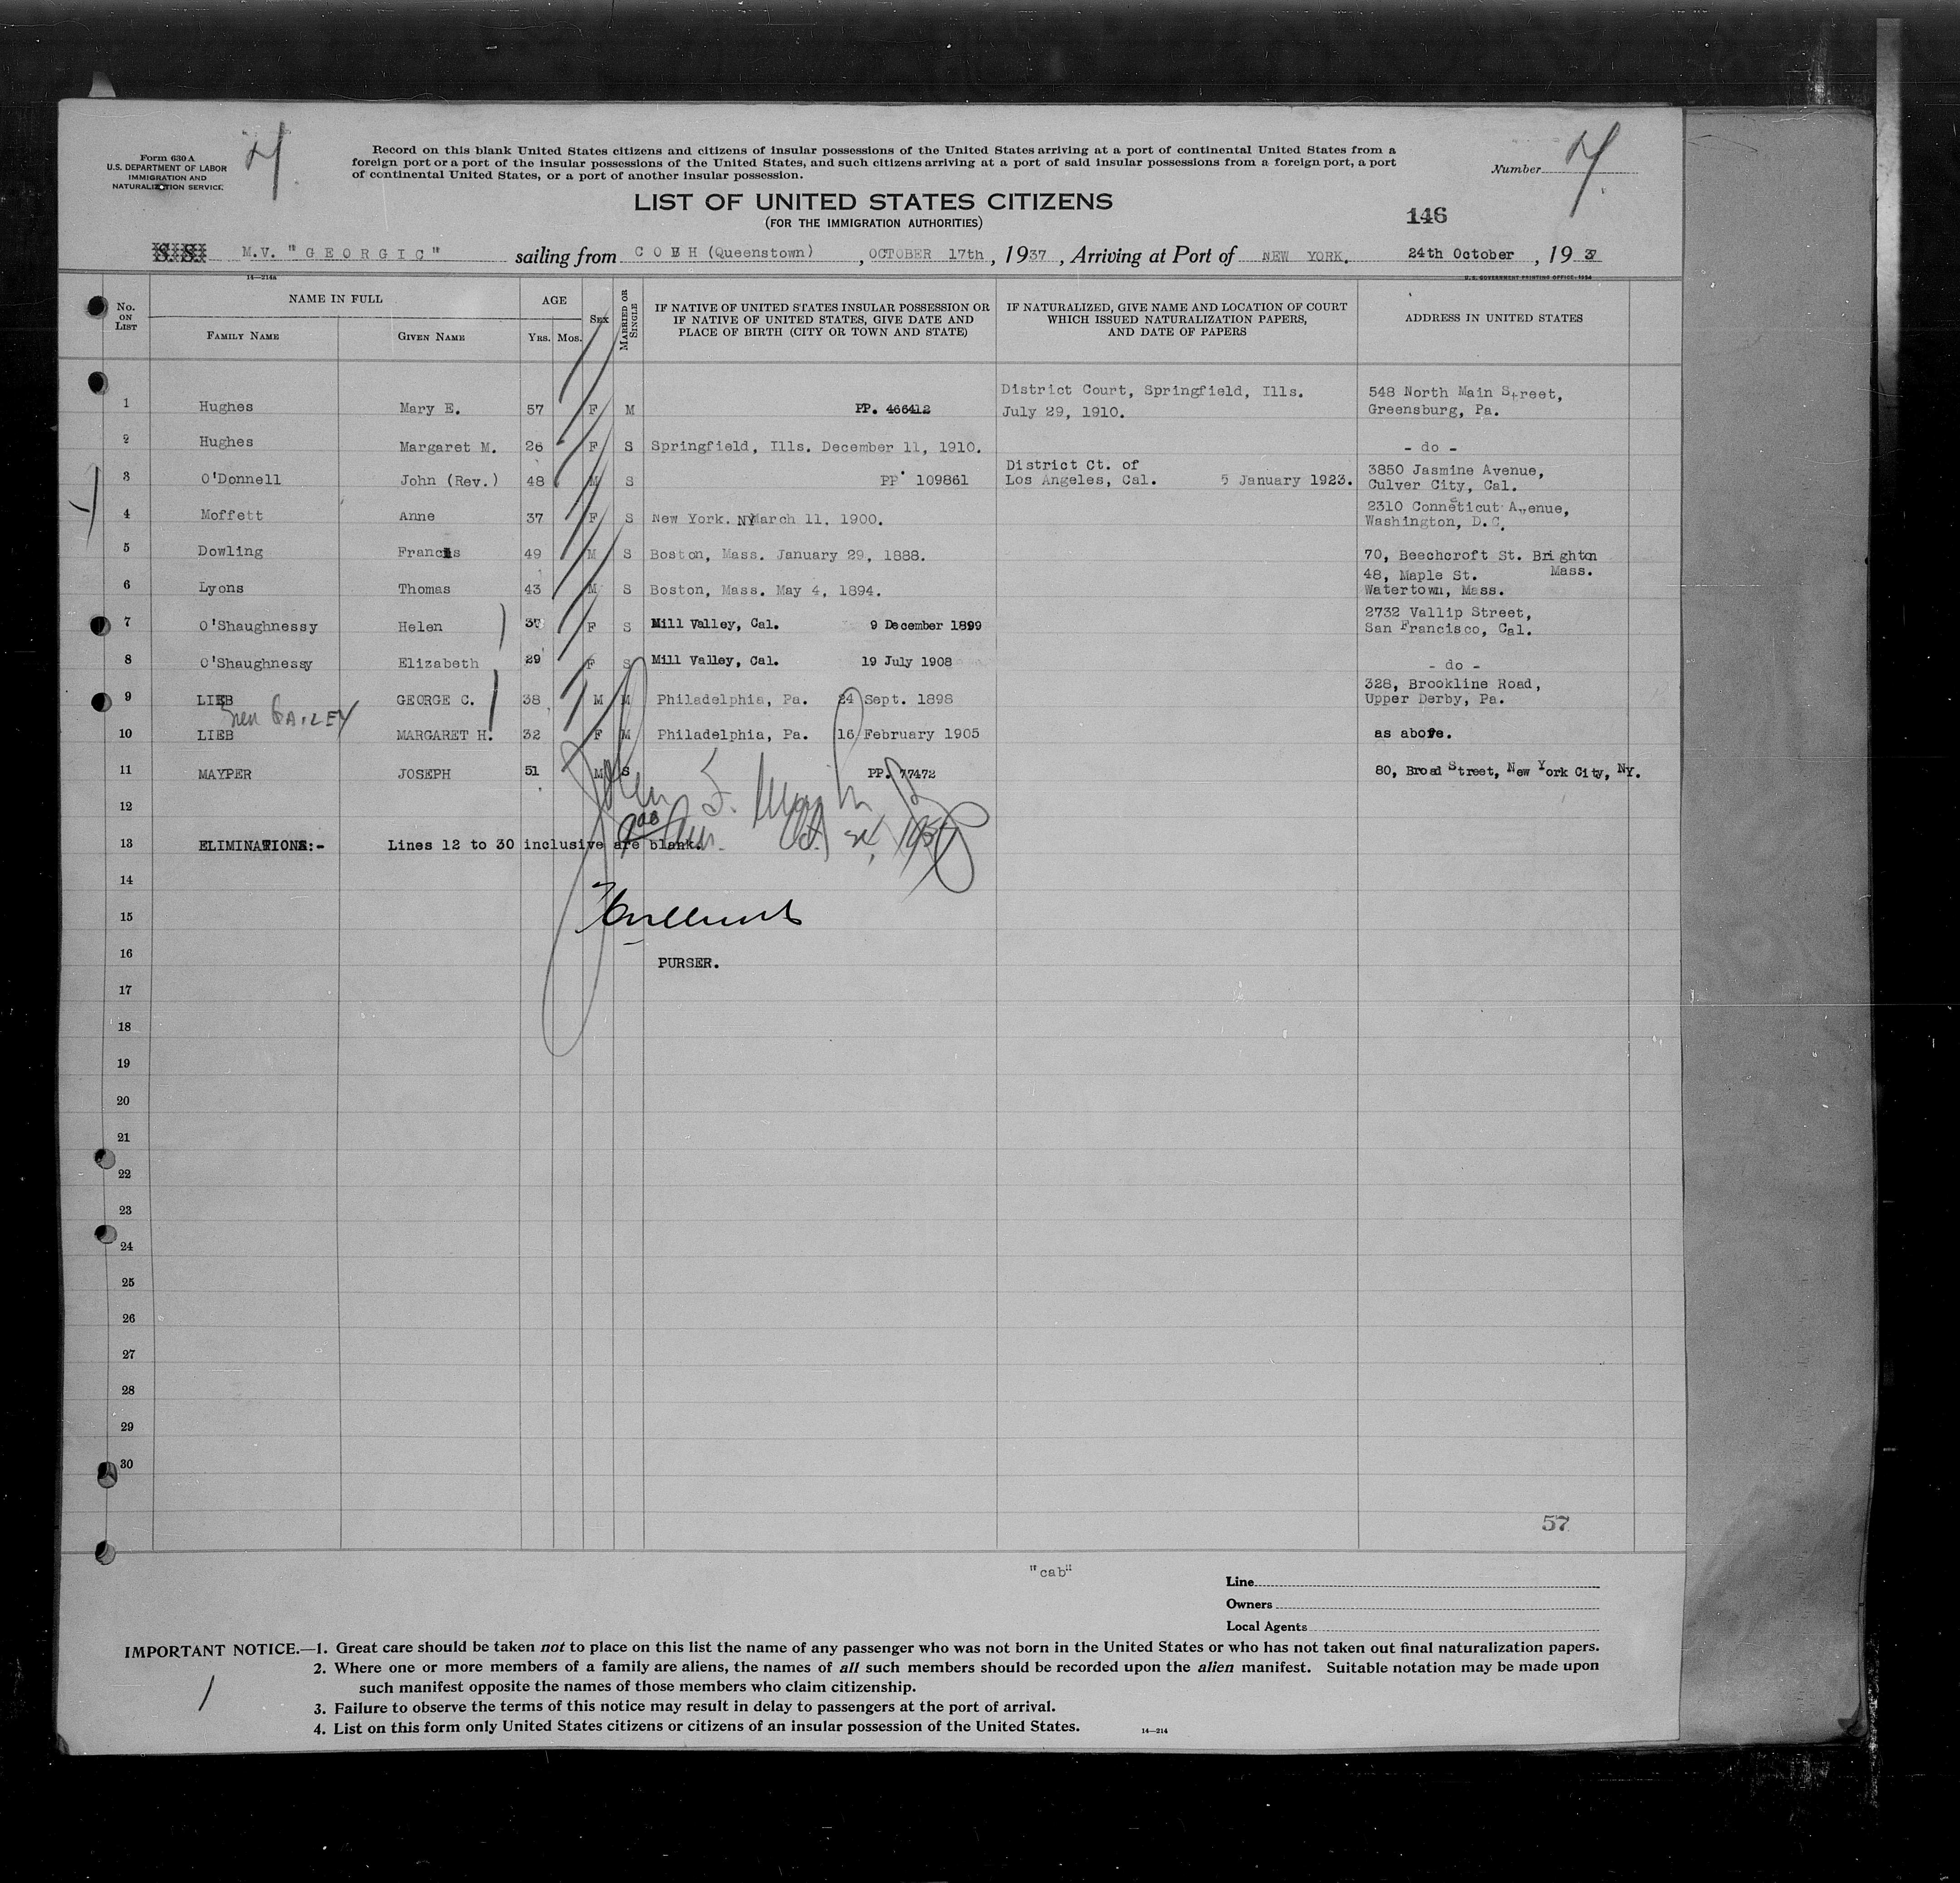 Form 630 A
U.S. DEPARTMENT OF LABOR
IMMIGRATION AND
NATURALIZATION SERVICE.
Record on this blank United States citizens and citizens of insular possessions of the United States arriving at a port of continental United States from a
foreign port or a port of the insular possessions of the United States, and such citizens arriving at a port of said insular possessions from a foreign port, a port
of continental United States, or a port of another insular possession.
Number
LIST OF UNITED STATES CITIZENS
(FOR THE IMMIGRATION AUTHORITIES)
146
S. S. M.V. "GEORGIC" sailing from COBH (Queenstown), OCTOBER 17th, 1937, Arriving at Port of NEW YORK. 24th October, 1937
14—214a
U. S. GOVERNMENT PRINTING OFFICE: 1934
No. ON LIST
NAME IN FULL
FAMILY NAME GIVEN NAME
AGE
YRS. MOS.
SEX
MARRIED OR SINGLE
IF NATIVE OF UNITED STATES INSULAR POSSESSION OR
IF NATIVE OF UNITED STATES, GIVE DATE AND
PLACE OF BIRTH (CITY OR TOWN AND STATE)
IF NATURALIZED, GIVE NAME AND LOCATION OF COURT
WHICH ISSUED NATURALIZATION PAPERS,
AND DATE OF PAPERS
ADDRESS IN UNITED STATES
District Court, Springfield, Ills. 548 North Main Street,
1 Hughes Mary E. 57 F M PP. 466412 July 29, 1910. Greensburg, Pa.
2 Hughes Margaret M. 26 F S Springfield, Ills. December 11, 1910. - do -
District Ct. of 3850 Jasmine Avenue,
3 O'Donnell John (Rev.) 48 M S PP 109861 Los Angeles, Cal. 5 January 1923. Culver City, Cal.
2310 Conneticut Avenue,
4 Moffett Anne 37 F S New York. NY March 11, 1900. Washington, D.C.
5 Dowling Francis 49 M S Boston, Mass. January 29, 1888. 70, Beechcroft St. Brighton
Mass.
48, Maple St.
6 Lyons Thomas 43 M S Boston, Mass. May 4, 1894. Watertown, Mass.
2732 Vallip Street,
7 O'Shaughnessy Helen 37 F S Mill Valley, Cal. 9 December 1899 San Francisco, Cal.
8 O'Shaughnessy Elizabeth 29 F S Mill Valley, Cal. 19 July 1908 - do -
328, Brookline Road,
9 LIEB GEORGE C. 38 M M Philadelphia, Pa. 24 Sept. 1898 Upper Derby, Pa.
10 LIEB MARGARET H. 32 F M Philadelphia, Pa. 16 February 1905 as above.
11 MAYPER JOSEPH 51 M S PP. 77472 80, Broad Street, New York City, NY.
12
13 ELIMINATIONS:- Lines 12 to 30 inclusive are blank.
14
15
16 PURSER.
17
18
19
20
21
22
23
24
25
26
27
28
29
30
57
"cab"
Line
Owners
Local Agents
IMPORTANT NOTICE.—1. Great care should be taken not to place on this list the name of any passenger who was not born in the United States or who has not taken out final naturalization papers.
2. Where one or more members of a family are aliens, the names of all such members should be recorded upon the alien manifest. Suitable notation may be made upon
such manifest opposite the names of those members who claim citizenship.
3. Failure to observe the terms of this notice may result in delay to passengers at the port of arrival.
4. List on this form only United States citizens or citizens of an insular possession of the United States.
14—214